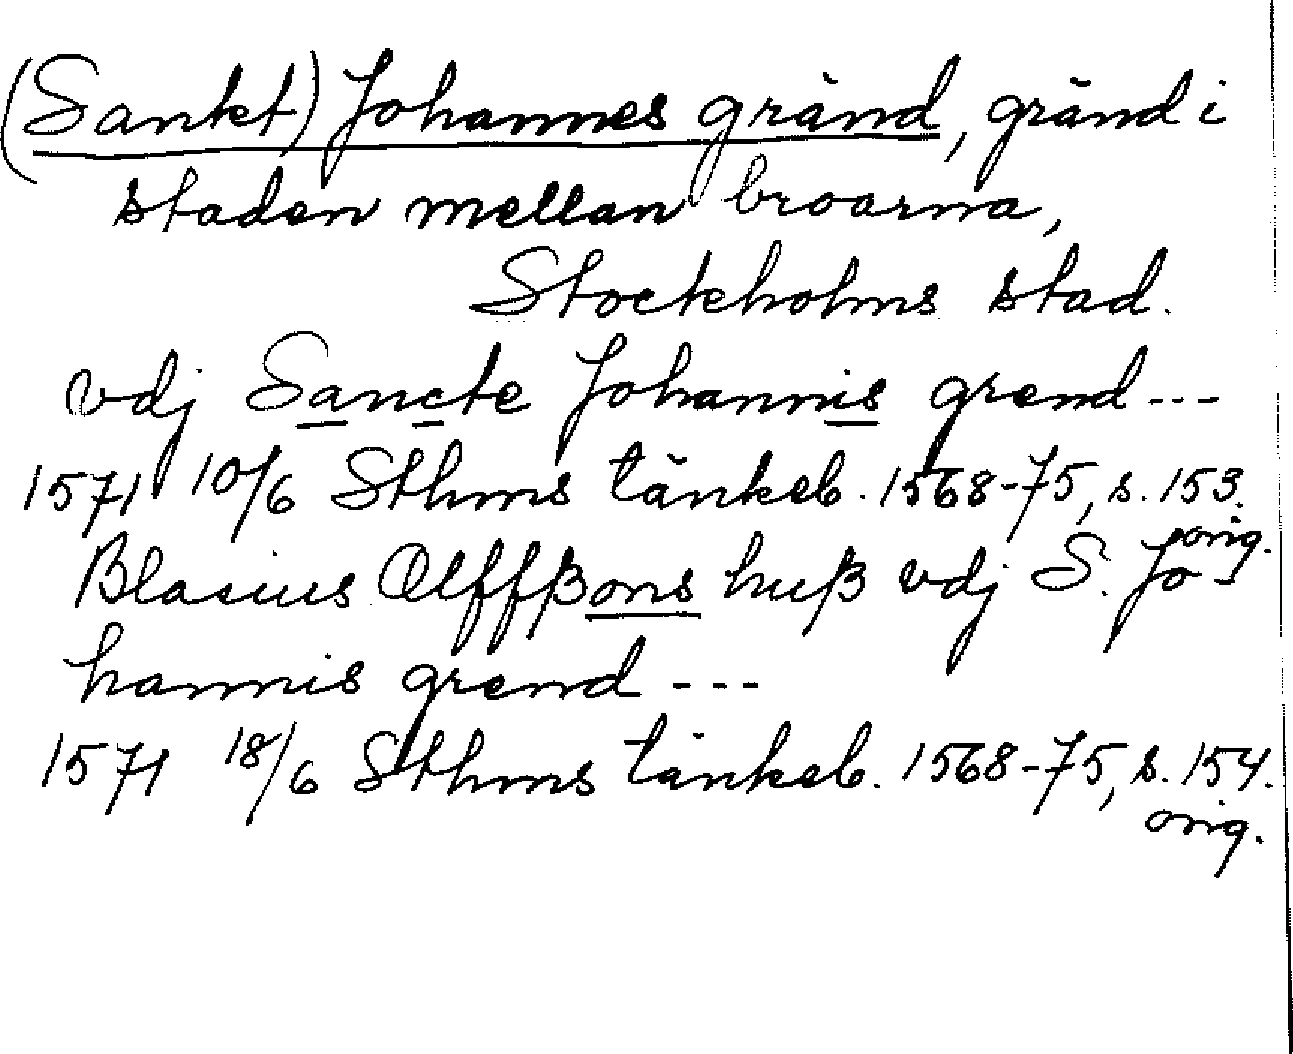 (Sankt) Johannes gränd, gränd i
staden mellan broarna,
Stockholms stad.
vdj Sancte Johannis grend---
1571 10/6 Sthms tänkeb. 1568-75, s. 153.
orig.
Blasius Olffßons huß vdj S. Jo
hannis grend---
1571 18/6 Sthms tänkeb. 1568-75, s. 154.
orig.